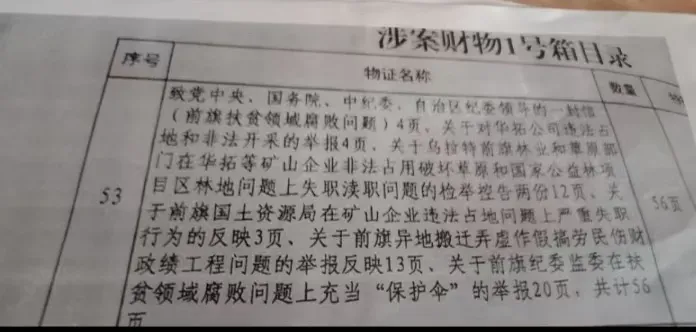 涉案财物1号箱目录
序号 物证名称 数量
致党中央、国务院、中纪委、自治区纪委领导的一封信
（前旗扶贫领域腐败问题）4页、关于对华拓公司违法占
地和非法开采的举报4页、关于乌拉特前旗林业和草原部
门在华拓等矿山企业非法占用破坏草原和国家公益林项
目区林地问题上失职渎职问题的检举控告两份12页、关
53 56页
于前旗国土资源局在矿山企业违法占地问题上严重失职
行为的反映3页、关于前旗异地搬迁弄虚作假搞劳民伤财
政绩工程问题的举报反映13页、关于前旗纪委监委在扶
贫领域腐败问题上充当“保护伞”的举报20页，共计56
页